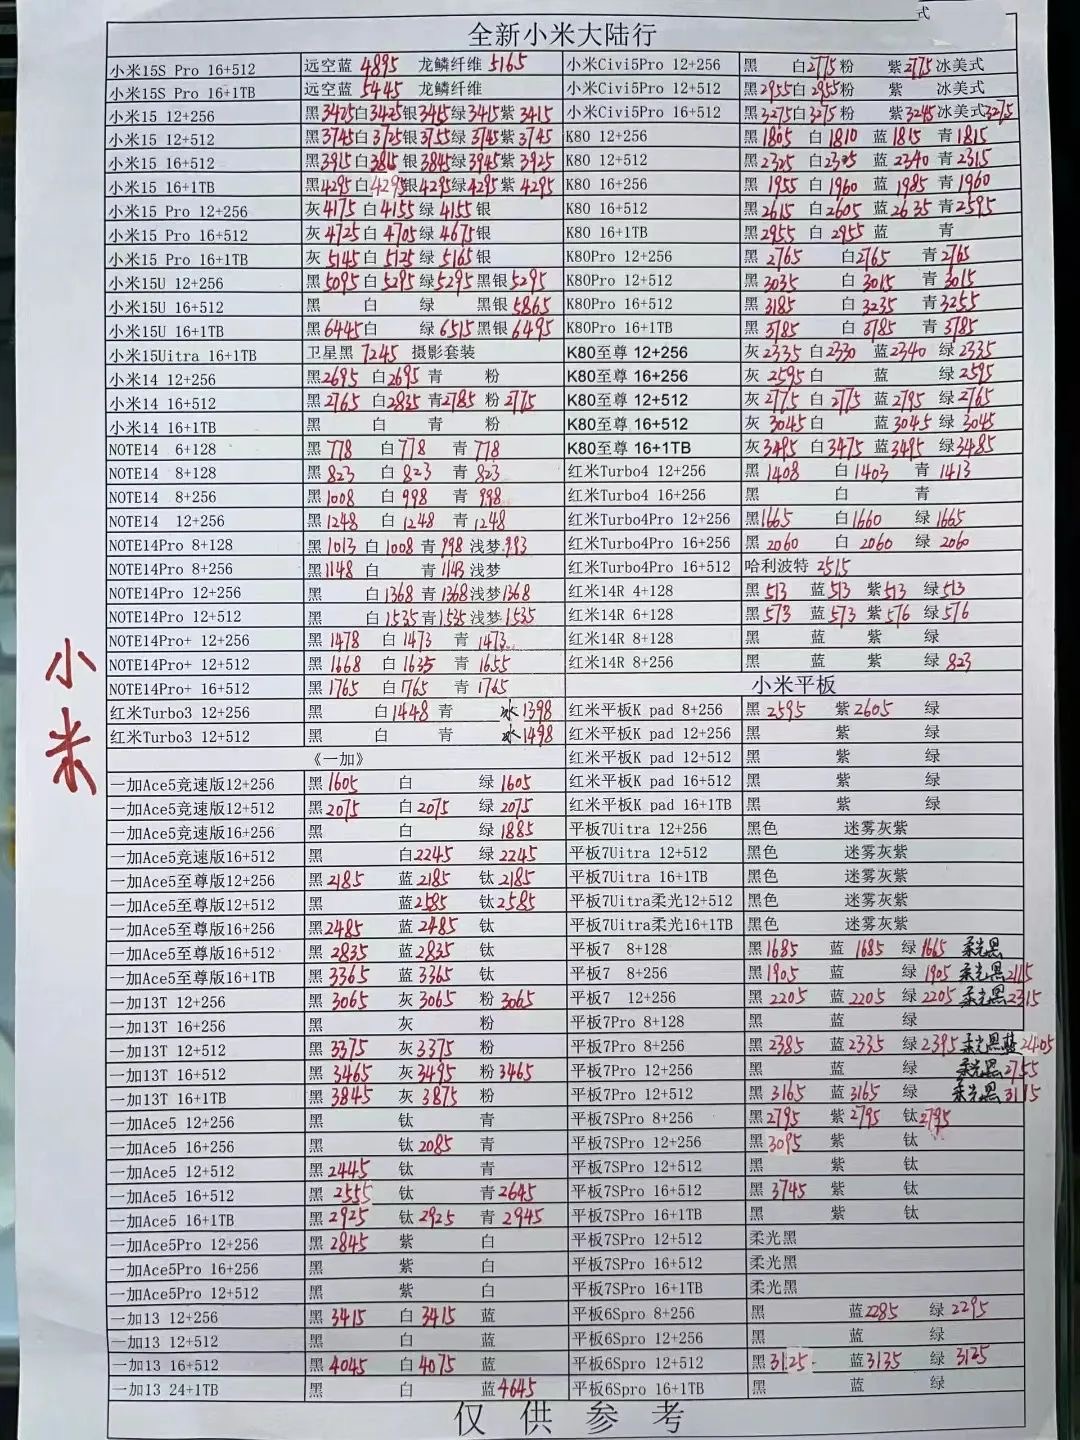 式
全新小米大陆行
小米15S Pro 16+512 远空蓝 4895 龙鳞纤维 5165 小米Civi5Pro 12+256 黑 白2775粉 紫2775冰美式
小米15S Pro 16+1TB 远空蓝 5445 龙鳞纤维 小米Civi5Pro 12+512 黑2955白2955粉 紫 冰美式
小米15 12+256 黑3425白3425银3445绿3415紫3415 小米Civi5Pro 16+512 黑3275白3275粉 紫3245冰美式3275
小米15 12+512 黑3745白3725银3755绿3745紫3745 K80 12+256 黑1805 白1810 蓝1815 青1815
小米15 16+512 黑3915白3815银3845绿3945紫3925 K80 12+512 黑2325 白2305 蓝2340 青2315
小米15 16+1TB 黑4295白4295银4295绿4295紫4295 K80 16+256 黑1955 白1960 蓝1985 青1960
小米15 Pro 12+256 灰4175白4155绿4155银 K80 16+512 黑2615 白2605 蓝2635 青2595
小米15 Pro 16+512 灰4725白4705绿4675银 K80 16+1TB 黑2955 白2955 蓝 青
小米15 Pro 16+1TB 灰5145白5125绿5165银 K80Pro 12+256 黑2765 白2765 青2765
小米15U 12+256 黑5095白5295绿5295黑银5295 K80Pro 12+512 黑3035 白3015 青3015
小米15U 16+512 黑 白 绿 黑银5865 K80Pro 16+512 黑3185 白3235 青3255
小米15U 16+1TB 黑6445白 绿6515黑银6495 K80Pro 16+1TB 黑3785 白3785 青3785
小米15Uitra 16+1TB 卫星黑 7245 摄影套装 K80至尊 12+256 灰2335白2330 蓝2340 绿2335
小米14 12+256 黑2695 白2695青 粉 K80至尊 16+256 灰2595白 蓝 绿2595
小米14 16+512 黑2765 白2835青2785粉2775 K80至尊 12+512 灰2775白2775 蓝2795 绿2765
小米14 16+1TB 黑 白 青 粉 K80至尊 16+512 灰3045白 蓝3045 绿3045
NOTE14 6+128 黑778 白778 青778 K80至尊 16+1TB 灰3495白3475 蓝3495绿3485
NOTE14 8+128 黑823 白823 青823 红米Turbo4 12+256 黑1408 白1403 青1413
NOTE14 8+256 黑1008 白998 青998 红米Turbo4 16+256 黑 白 青
NOTE14 12+256 黑1248 白1248 青1248 红米Turbo4Pro 12+256 黑1665 白1660 绿1665
NOTE14Pro 8+128 黑1013 白1008青998浅梦993 红米Turbo4Pro 16+256 黑2060 白2060 绿2060
NOTE14Pro 8+256 黑1148 白 青1143浅梦 红米Turbo4Pro 16+512 哈利波特 2515
NOTE14Pro 12+256 黑 白1368青1368浅梦1368 红米14R 4+128 黑513 蓝513 紫513 绿513
NOTE14Pro 12+512 黑 白1535青1535浅梦1535 红米14R 6+128 黑573 蓝573 紫576 绿576
NOTE14Pro+ 12+256 黑1478 白1473 青1473 红米14R 8+128 黑 蓝 紫 绿
NOTE14Pro+ 12+512 黑1668 白1635 青1655 红米14R 8+256 黑 蓝 紫 绿823
NOTE14Pro+ 16+512 黑1765 白1765 青1765 小米平板
红米Turbo3 12+256 黑 白1448青 冰1398 红米平板K pad 8+256 黑2595 紫2605 绿
红米Turbo3 12+512 黑 白 青 冰1498 红米平板K pad 12+256 黑 紫 绿
《一加》 红米平板K pad 12+512 黑 紫 绿
一加Ace5竞速版12+256 黑1605 白 绿1605 红米平板K pad 16+512 黑 紫 绿
一加Ace5竞速版12+512 黑2075 白2075 绿2075 红米平板K pad 16+1TB 黑 紫 绿
一加Ace5竞速版16+256 黑 白 绿1885 平板7Uitra 12+256 黑色 迷雾灰紫
一加Ace5竞速版16+512 黑 白2245 绿2245 平板7Uitra 12+512 黑色 迷雾灰紫
一加Ace5至尊版12+256 黑2185 蓝2185 钛2185 平板7Uitra 16+1TB 黑色 迷雾灰紫
一加Ace5至尊版12+512 黑 蓝2585 钛2585 平板7Uitra柔光12+512 黑色 迷雾灰紫
一加Ace5至尊版16+256 黑2485 蓝2485 钛 平板7Uitra柔光16+1TB 黑色 迷雾灰紫
一加Ace5至尊版16+512 黑2835 蓝2835 钛 平板7 8+128 黑1685 蓝1685 绿1665 柔光黑
一加Ace5至尊版16+1TB 黑3365 蓝3365 钛 平板7 8+256 黑1905 蓝 绿1905 柔光黑2115
一加13T 12+256 黑3065 灰3065 粉3065 平板7 12+256 黑2205 蓝2205 绿2205 柔光黑2315
一加13T 16+256 黑 灰 粉 平板7Pro 8+128 黑 蓝 绿
一加13T 12+512 黑3375 灰3375 粉 平板7Pro 8+256 黑2385 蓝2335 绿2395 柔光黑蓝2405
一加13T 16+512 黑3465 灰3495 粉3465 平板7Pro 12+256 黑 蓝 绿 柔光黑2755
一加13T 16+1TB 黑3845 灰3875 粉 平板7Pro 12+512 黑3165 蓝3165 绿 柔光黑3115
一加Ace5 12+256 黑 钛 青 平板7SPro 8+256 黑2795 紫2795 钛2795
一加Ace5 16+256 黑 钛2085 青 平板7SPro 12+256 黑3095 紫 钛
一加Ace5 12+512 黑2445 钛 青 平板7SPro 12+512 黑 紫 钛
一加Ace5 16+512 黑2555 钛 青2645 平板7SPro 16+512 黑3745 紫 钛
一加Ace5 16+1TB 黑2925 钛2925 青2945 平板7SPro 16+1TB 黑 紫 钛
一加Ace5Pro 12+256 黑2845 紫 白 平板7SPro 12+512 柔光黑
一加Ace5Pro 16+256 黑 紫 白 平板7SPro 16+512 柔光黑
一加Ace5Pro 12+512 黑 紫 白 平板7SPro 16+1TB 柔光黑
一加13 12+256 黑3415 白3415 蓝 平板6Spro 8+256 黑 蓝2285 绿2295
一加13 12+512 黑 白 蓝 平板6Spro 12+256 黑 蓝 绿
一加13 16+512 黑4045 白4075 蓝 平板6Spro 12+512 黑3125 蓝3135 绿3125
一加13 24+1TB 黑 白 蓝4645 平板6Spro 16+1TB 黑 蓝 绿
仅供参考
小米